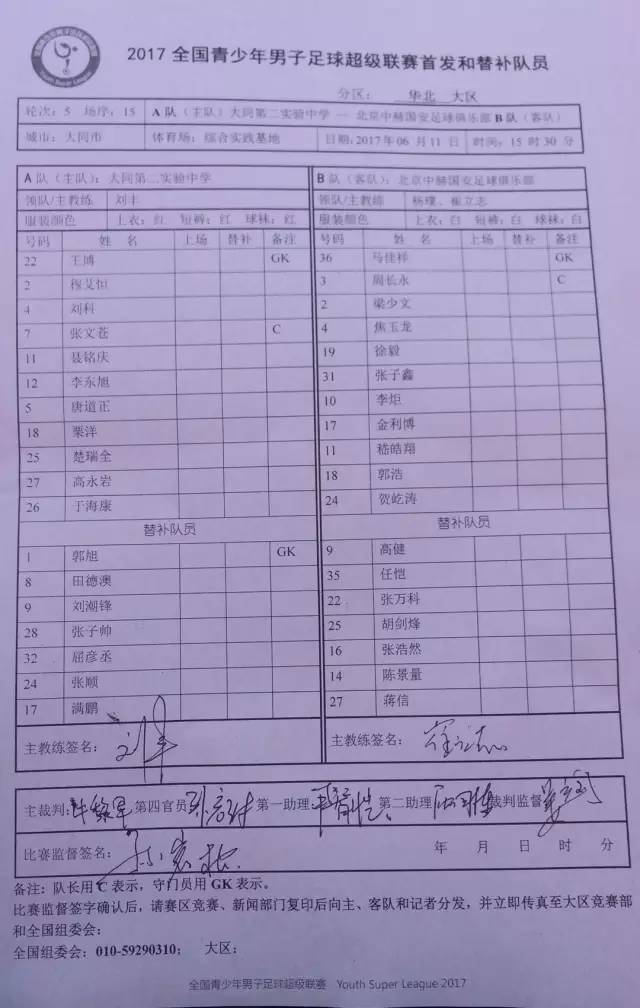 Youth Super League
2017 全国青少年男子足球超级联赛首发和替补队员
分区： 华北 大区
轮次：5 场序：15 A 队（主队）大同第二实验中学 — 北京中赫国安足球俱乐部 B 队（客队）
城市：大同市 体育场：综合实践基地 日期：2017年 06 月 11 日 时间：15 时 30 分
A 队（主队）：大同第二实验中学 B 队（客队）：北京中赫国安足球俱乐部
领队/主教练 刘丰 领队/主教练 杨璞、崔立志
服装/颜色 上衣：红 短裤：红 球袜：红 服装/颜色 上衣：白 短裤：白 球袜：白
号码 姓 名 上场 替补 备注 号码 姓 名 上场 替补 备注
22 王博 GK 36 马佳祥 GK
2 穆艾恒 3 周长永 C
4 刘科 2 梁少文
7 张文苍 C 4 焦玉龙
11 聂铭庆 19 徐毅
12 李东旭 31 张子鑫
5 唐道正 10 李炬
18 栗洋 17 金利博
25 楚瑞全 11 嵇皓翔
27 高永岩 18 郭浩
26 于海康 24 贺屹涛
替补队员 替补队员
1 郭旭 GK 9 高健
8 田德澳 35 任恺
9 刘潮锋 22 张万科
28 张子帅 25 胡剑烽
32 屈彦丞 16 张浩然
24 张顺 14 陈景量
17 满鹏 27 蒋信
主教练签名：刘丰 主教练签名：崔立志
主裁判： 第四官员 第一助理 第二助理 裁判监督
比赛监督签名： 年 月 日 时 分
备注：队长用 C 表示，守门员用 GK 表示。
比赛监督签字确认后，请赛区竞赛、新闻部门复印后向主、客队和记者分发，并立即传真至大区竞赛部
和全国组委会；
全国组委会：010-59290310； 大区：
全国青少年男子足球超级联赛 Youth Super League 2017